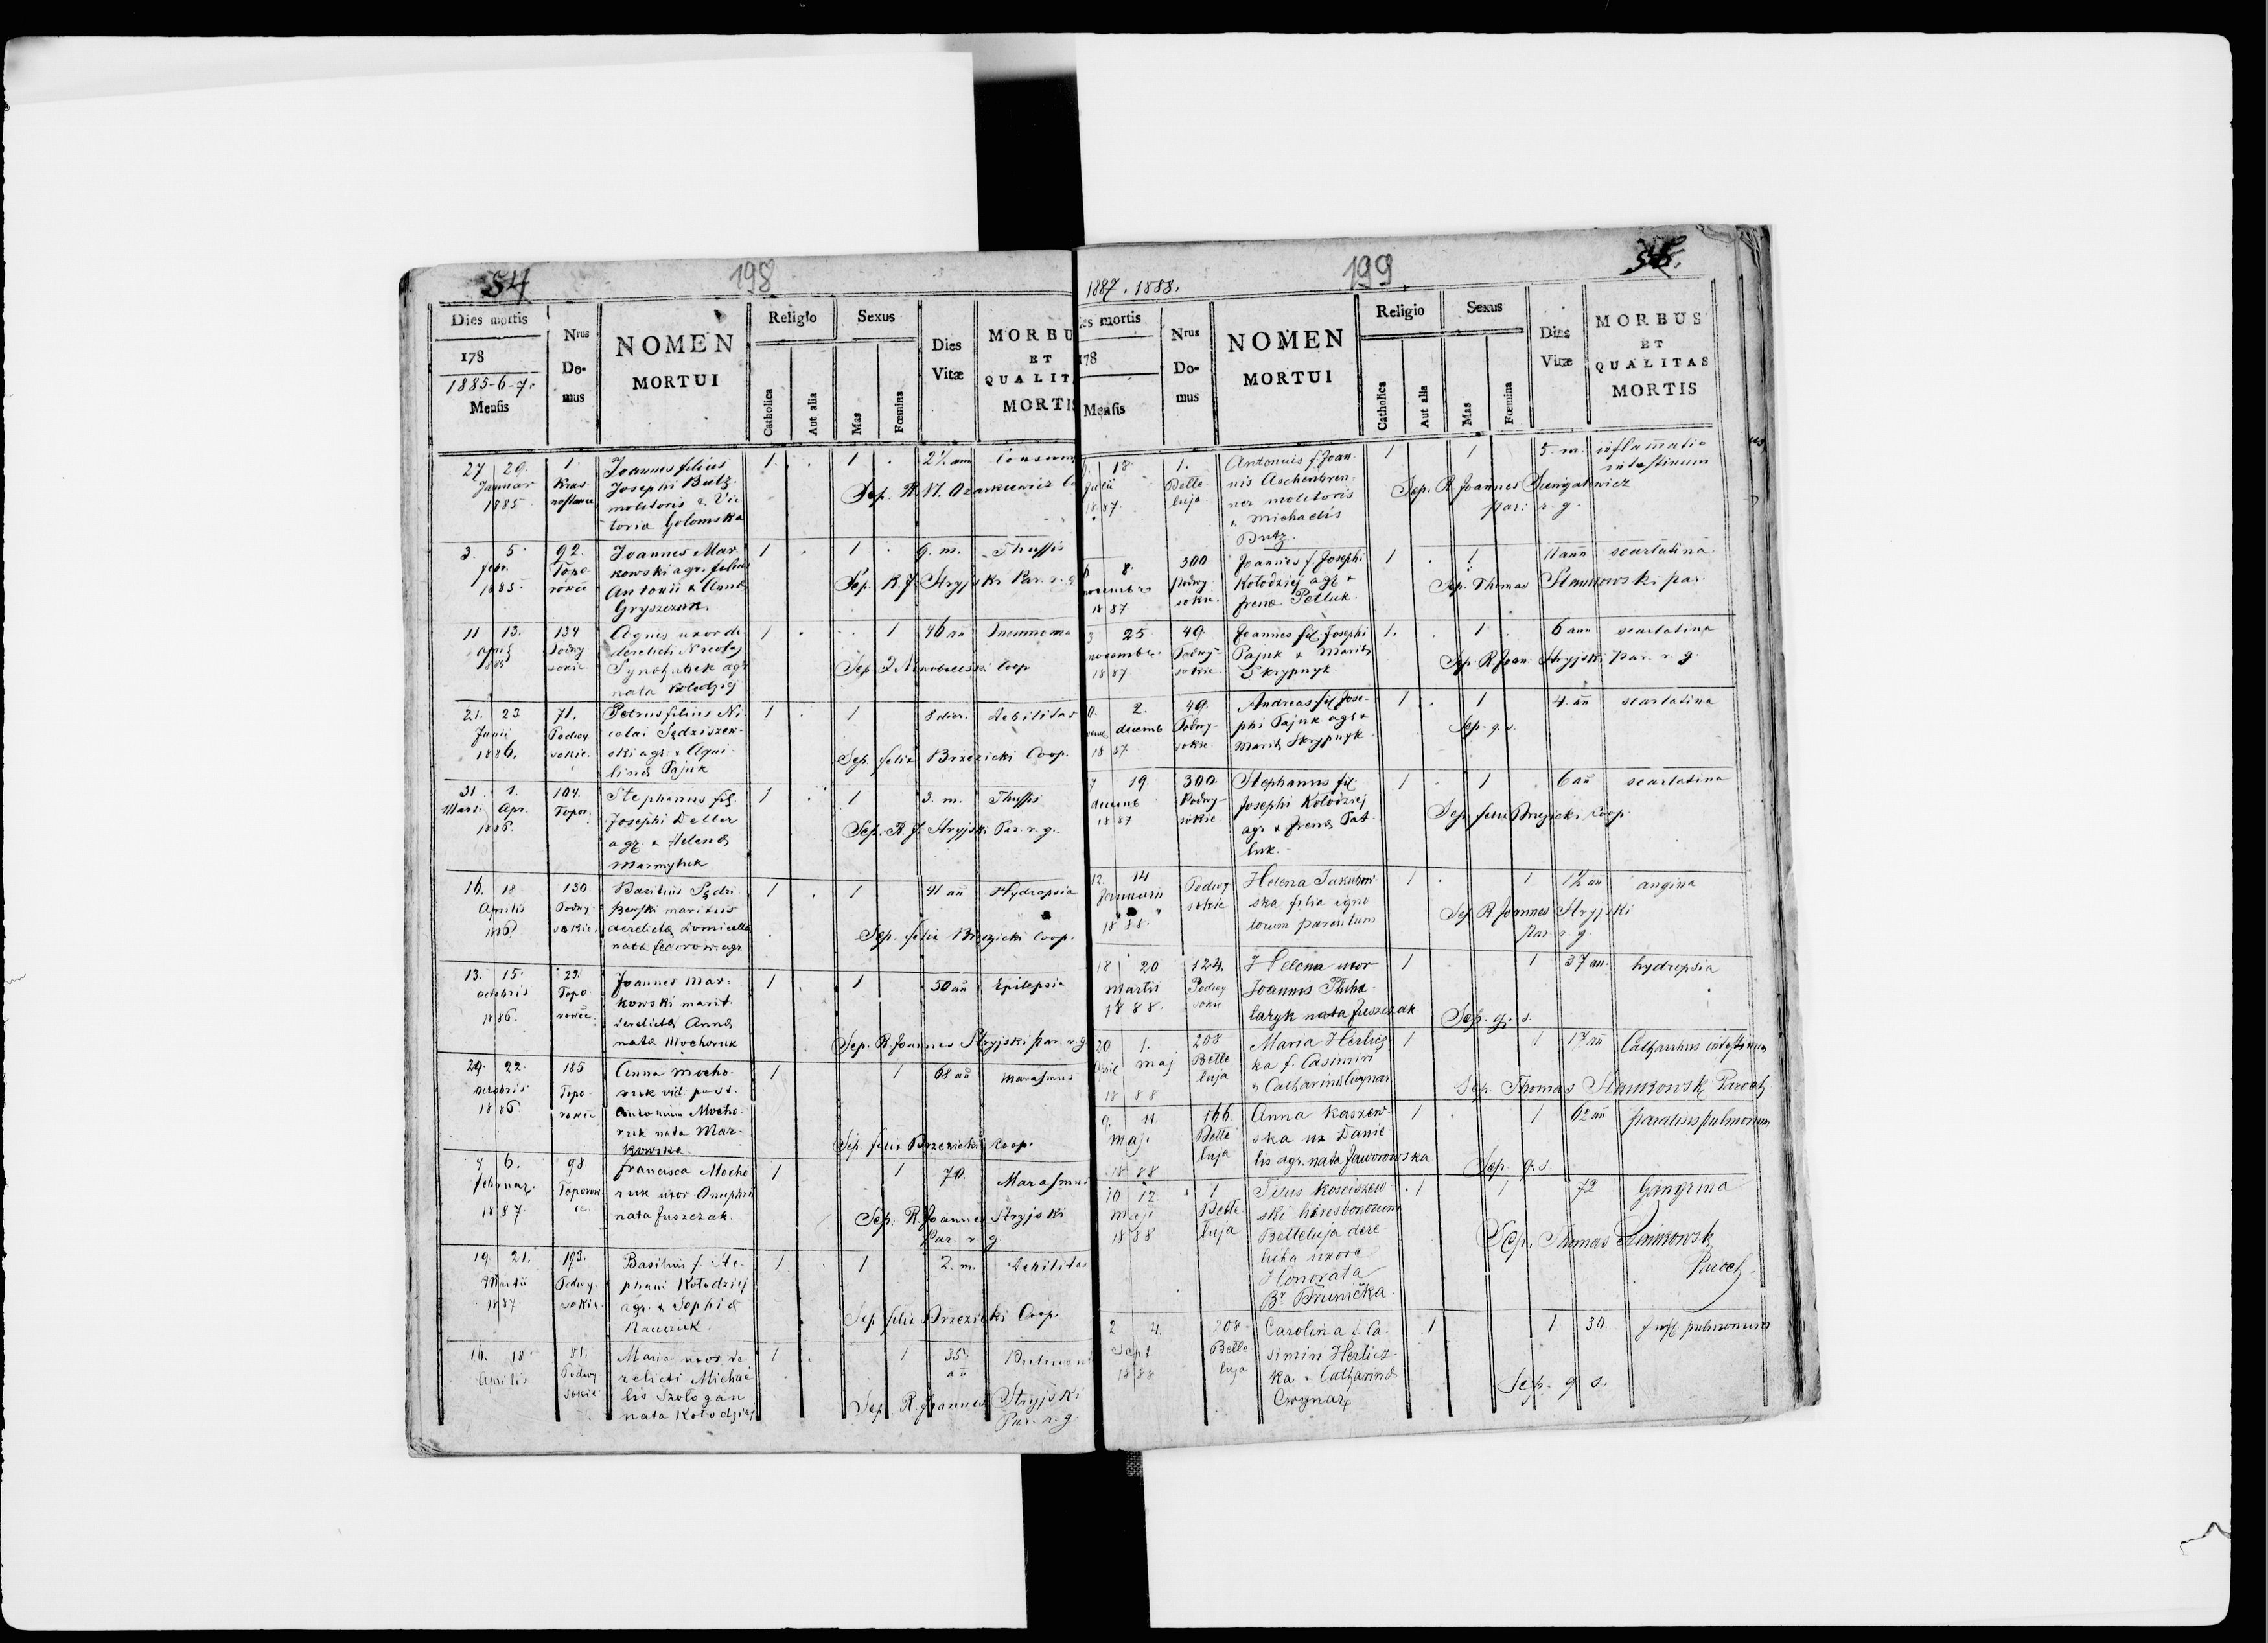 54
198
Dies mortis
178
1885-6-7.
Mensis
Nrus
Do-
mus
NOMEN
MORTUI
Religio
Catholica
Aut alia
Sexus
Mas
Fœmina
Dies
Vitæ
MORBU
ET
QUALIT
MORTIS
27 29.
Januar
1885
1.
Kras
nostawce
Joannes filius
Josephi Butz
molitoris & Vic
toria Golomska
1. . 1 .
2½ ann
Sep. R.
3. 5.
febr.
1885.
92.
Topo
rowce
Joannes Mar
kowski agr. filius
Antonii & Anna
Gryszczuk.
1 . 1 .
9. m.
Thussis
Sep. R. J. Stryjski Par. r. g
11 13.
april
1885
134
Podwy
sokie
Agnes uxor de
derelicti Nicolaj
agr
nata Kolodziej
1 . . 1
46 an
Pneumonia
Sep
Coop
21. 23
Junii
1886.
71.
Podwy
sokie.
Petrus filius Ni
colai Sędziszew-
ski agr. & Aqui-
lina Pajuk
1 . 1
8 dier.
debilitas
Sep. felix Brzezicki Coop.
31. 1.
Marti Apr.
1886.
104.
Topor.
Stephanus fil.
Josephi Deller
agr. & Helena
Marmyluk
1 . 1
3. m.
Thussis
Sep. R. J. Stryjski Par. r. g.
16. 18
Aprilis
1886
130
Podwy-
sokie.
Basilius Sędzi
maritus
derelicta Domicella
nata fedorow. agr
1 . 1
41 an
Hydropsia
Sep. felix Brzezicki Coop.
13. 15.
octobris
1886.
29.
Topo
rowce.
Joannes Mar-
kowski marit
derelicta Anna
nata Mochoruk
1 1
50 an
Epilepsia
Sep. R Joannes Stryjski par. r. g
20. 22.
octobris
1886.
185
Topo
rowce
Anna Mocho-
ruk vid. post.
Antonium Mocho-
ruk nata Mar-
kowska
1 1
68 an
Marasmus
Sep. felix Brzezicki Coop.
4 6.
februar.
1887.
98
Toporow
ce.
francisca Mocho
ruk uxor Onuphrii
nata Juszczak.
1 1
70.
Marasmus
Sep. R. Joannes Stryjski
Par. r g
19 21.
Martii
1887.
193.
Podwy-
sokie
Basilius f. Ste-
phani Kołodziej
agr. & Sophia
1 . 1
2. m.
debilitas
Sep felix Brzezicki Coop.
16. 18.
Aprilis
81.
Podwy
sokie
Maria uxor de
relicti Michae
lis Szologan
nata Kołodziej
1 . 1
35.
an
Sep. R. Joannes Stryjski
Par. r. g
1887. 1888.
199
Dies mortis
178
Mensis
Nrus
Do-
mus
NOMEN
MORTUI
Religio
Catholica
Aut alia
Sexus
Mas
Fœmina
Dies
Vitæ
MORBUS
ET
QUALITAS
MORTIS
18
Julii
1887.
1.
Belle
luja
Antonius f. Joan-
nis Aschenbren-
ner molitoris
& Michaelis
Butz.
1 1
5. m.
inflamatio
intestinum
Sep. R Joannes
par. r. g.
8.
novembris
1887
300
Podwy
sokie.
Joannes f. Josephi
Kołodziej agr &
Irena Petluk.
1 . 1
11 ann
scarlatina
Sep. Thomas Stankowski par.
25
novembr.
1887
49
Podwy-
sokie.
Joannes fil Josephi
Pajuk & Maria
Skrypnyk.
1. . 1 .
6 ann
scarlatina
Sep. R Joan. Stryjski par. r. g.
2.
decemb
1887
49.
Podwy-
sokie
Andreas fil Jose-
phi Pajuk agr &
Maria Skrypnyk
1 . 1
4. an
scarlatina
Sep. q. s.
19.
decemb
1887
300.
Podwy-
sokie.
Stephanus fil
Josephi Kołodziej
agr & Irena Pet
luk.
1 . 1
6 an
scarlatina
Sep. felix Brzezicki Coop
12. 14
Januarii
1888.
Podwy
sokie
Helena Jakubow-
ska filia igno
torum parentum
1 . 1
1½ an
angina
Sep R Joannes Stryjski
Par. r. g.
18 20
Martii
1888.
124.
Podwy
sokie
Helena uxor
Joannis
laryk nata Juszczak
1 1
37 an.
hydropsia
Sep. q. s.
20 1.
maj
1888
208
Belle
luja
Maria Herlicz
ka f. Casimiri
& Catharina Cwynar
1 1
17 an
Catharrhus intestinum
Sep. Thomas Stankowski Paroch
9. 11.
Maji
1888
166
Belle
luja
Anna Kaszew
ska ux Danie
lis agr. nata Jaworowska
1 . 1
62 an
paralisis pulmonum
Sep. q. s.
10 12.
Maji
1888
1
Belle
luja
Titus Kosciszew
ski hæres bonorum
Belleluja dere
licta uxore
Honorata
Br Brunicka
1 1
72
Gangrena
Sep. Thomas Stankowski
Paroch
2 4.
Sept
1888
208
Belle
luja
Carolina f. Ca
simiri Herlicz-
ka & Catharina
Cwynar
1 1
30
pulmonum
Sep. q s.